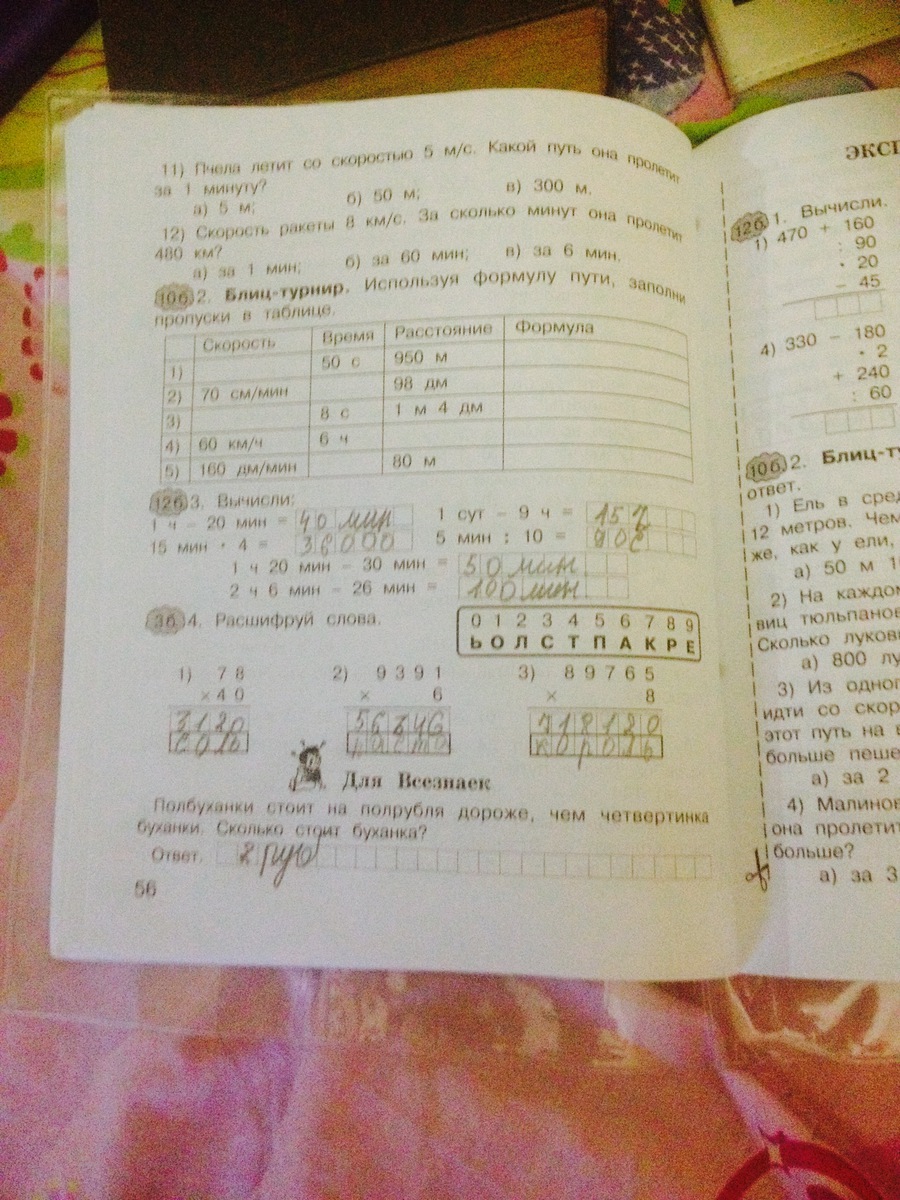 11) Пчела летит со скоростью 5 м/с. Какой путь она пролетит
за 1 минуту?
а) 5 м; б) 50 м; в) 300 м.
12) Скорость ракеты 8 км/с. За сколько минут она пролетит
480 км?
а) за 1 мин; б) за 60 мин; в) за 6 мин.
10б 2. Блиц-турнир. Используя формулу пути, заполни
пропуски в таблице.
Скорость Время Расстояние Формула
1) 50 с 950 м
2) 70 см/мин 98 дм
3) 8 с 1 м 4 дм
4) 60 км/ч 6 ч
5) 160 дм/мин 80 м
12б 3. Вычисли:
1 ч – 20 мин = 40 мин 1 сут – 9 ч = 15
15 мин · 4 = 5 мин : 10 =
1 ч 20 мин – 30 мин = 50 мин.
2 ч 6 мин – 26 мин = 100 мин.
3б 4. Расшифруй слова.
0 1 2 3 4 5 6 7 8 9
Ь О Л С Т П А К Р Е
1) 7 8 2) 9 3 9 1 3) 8 9 7 6 5
× 4 0 × 6 × 8
3120 56346 718120
соль паста король
Для Всезнаек
Полбуханки стоит на полрубля дороже, чем четвертинка
буханки. Сколько стоит буханка?
Ответ.
56
ЭКСП
12б 1. Вычисли.
1) 470 + 160
: 90
· 20
– 45
4) 330 – 180
· 2
+ 240
: 60
10б 2. Блиц-ту
ответ.
1) Ель в сред
12 метров. Чем
же, как у ели,
а) 50 м 1
2) На каждом
виц тюльпанов
Сколько лукови
а) 800 лу
3) Из одног
идти со скор
этот путь на
больше пеше
а) за 2
4) Малинов
она пролетит
больше?
а) за 3